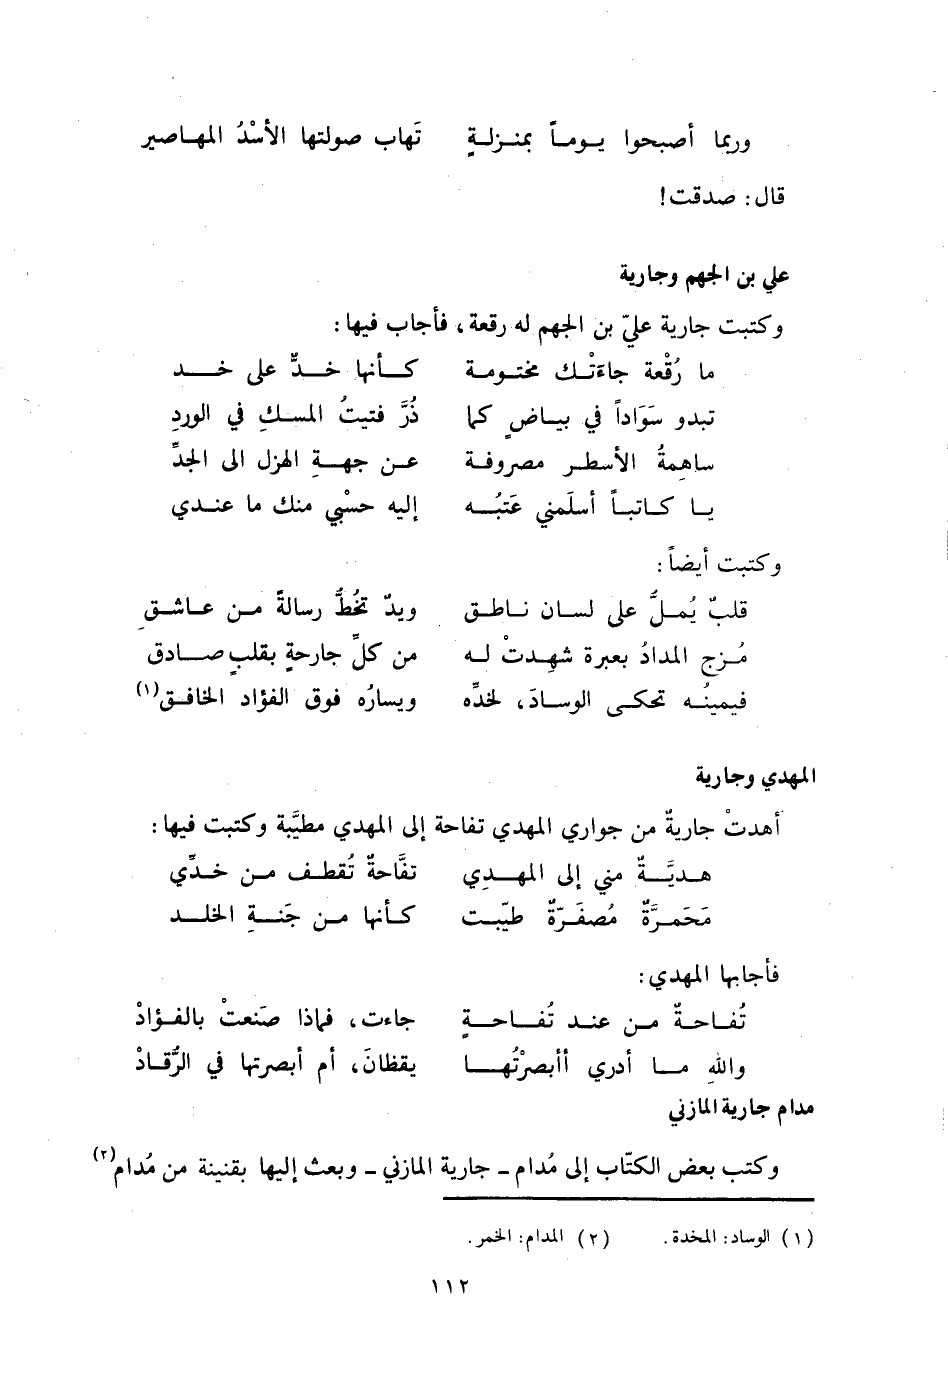 وربما أصبحوا يوماً بمنزلةٍ تَهاب صولتها الأسْدُ المهاصير
قال: صدقت!
علي بن الجهم وجارية
وكتبت جارية عليّ بن الجهم له رقعة، فأجاب فيها:
ما رُقْعة جاءتْك مختومة كأنها خدٌّ على خد
تبدو سَوَاداً في بياضٍ كما ذُرَّ فتيتُ المسكِ في الوردِ
ساهمةُ الأسطر مصروفة عن جهةِ الهزل الى الجدِّ
يا كاتباً أسلَمني عَتبُه إليه حسْبي منك ما عندي
وكتبت أيضاً:
قلبٌ يُملُّ على لسان ناطق ويدٌ تخُطُّ رسالةً من عاشقِ
مُزج المدادُ بعبرة شهِدتْ له من كلِّ جارحةٍ بقلبٍ صادق
فيمينُه تحكى الوسادَ، لخدِّه ويسارُه فوق الفؤاد الخافق(١)
المهدي وجارية
أهدتْ جاريةٌ من جواري المهدي تفاحة إلى المهدي مطيَّبة وكتبت فيها:
هديَّةٌ مني إلى المهدِي تفَّاحةٌ تُقطف من خدِّي
مَحَمرَّةٌ مُصفَرّةٌ طيّبت كأنها من جَنةِ الخلد
فأجابها المهدي:
تُفاحةٌ من عند تُفاحةٍ جاءت، فماذا صَنعتْ بالفؤادْ
واللهِ ما أدري أأبصرْتُها يقظانَ، أم أبصرتها في الرُّقادْ
مدام جارية المازني
وكتب بعض الكتّاب إلى مُدام ـ جارية المازني ـ وبعث إليها بقنينة من مُدام(٢)
(١) الوساد: المخدة. (٢) المدام: الخمر.
١١٢